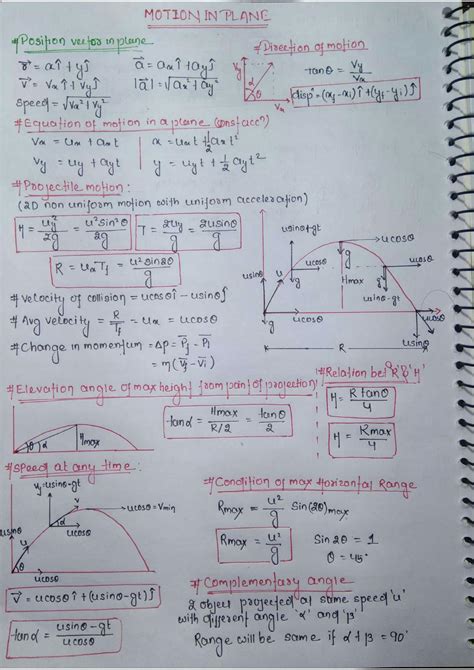 MOTION IN PLANE
#Position vector in plane
r⃗ = xî + yĵ
a⃗ = aₓî + aᵧĵ
v⃗ = vₓî + vᵧĵ
|a⃗| = √(aₓ² + aᵧ²)
speed = √(vₓ² + vᵧ²)
#Direction of motion
vᵧ
α
θ
vₓ
tanθ = vᵧ/vₓ
disp⃗ = (x_f - x_i)î + (y_f - y_i)ĵ
#Equation of motion in a plane (const accⁿ)
vₓ = uₓ + aₓt
x = uₓt + 1/2 aₓt²
vᵧ = uᵧ + aᵧt
y = uᵧt + 1/2 aᵧt²
#Projectile motion :
(2D non uniform motion with uniform acceleration)
H = uᵧ²/2g = u²sin²θ/2g
T = 2uᵧ/g = 2usinθ/g
R = uₓT_f = u²sin2θ/g
usinθ-gt
ucosθ
ucosθ
ucosθ
usinθ
u
g
g
g
Hmax
usinθ-gt
θ
ucosθ
ucosθ
usinθ
R
# Velocity of collision = ucosθî - usinθĵ
# Avg velocity = R/T_f = uₓ = ucosθ
# Change in momentum = ΔP = P̄_f - P̄_i
= m(v̄_f - v̄_i)
#Elevation angle of max height from point of projection
θ
α
Hmax
tanα = Hmax/(R/2) = tanθ/2
#Relation bet 'R' & 'H'
H = R tanθ/4
H = Rmax/4
#Speed at any time :
vᵧ=usinθ-gt
v
α
ucosθ
ucosθ = Vmin
usinθ
u
θ
ucosθ
v⃗ = ucosθî + (usinθ-gt)ĵ
tanα = (usinθ - gt)/ucosθ
#Condition of max Horizontal Range
Rmax = u²/g Sin(2θ)max
Rmax = u²/g
Sin2θ = 1
θ = 45°
#Complementary angle
2 object projected at same speed 'u'
with different angle 'α' and 'β'
Range will be same if α + β = 90°